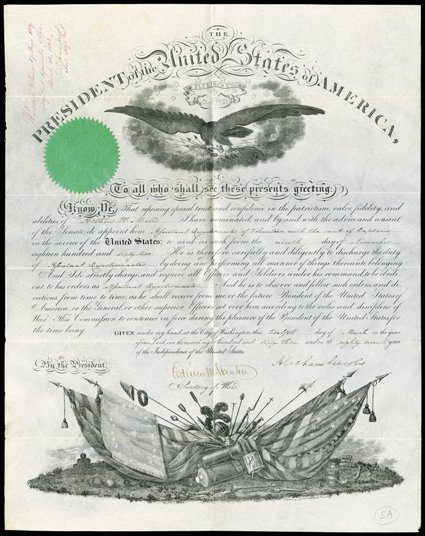 THE
PRESIDENT of the United States of AMERICA,
To all who shall see these presents greeting:
Know Ye, That reposing special trust and confidence in the patriotism, valor, fidelity, and
abilities of I have nominated, and by and with the advice and consent
of the Senate, do appoint him Assistant Quartermaster of Volunteers with the rank of Captain
in the service of the United States: to rank as such from the ninth day of November
eighteen hundred and sixty two. He is therefore carefully and diligently to discharge the duty
of Assistant Quartermaster by doing and performing all manner of things thereunto belonging.
And I do strictly charge and require all Officers and Soldiers under his command to be obedi-
ent to his orders as Assistant Quartermaster. And he is to observe and follow such orders and di-
rections from time to time, as he shall receive from me, or the future President of the United States of
America, or the General, or other superior Officers set over him, according to the rules and discipline of
War. This Commission to continue in force during the pleasure of the President of the United States, for
the time being.
GIVEN under my hand at the City of Washington this day of March in the year
of our Lord, one thousand eight hundred and sixty three and in the eighty seventh year
of the Independence of the United States.
By the President,
Abraham Lincoln
Edwin M Stanton
Secretary of War.